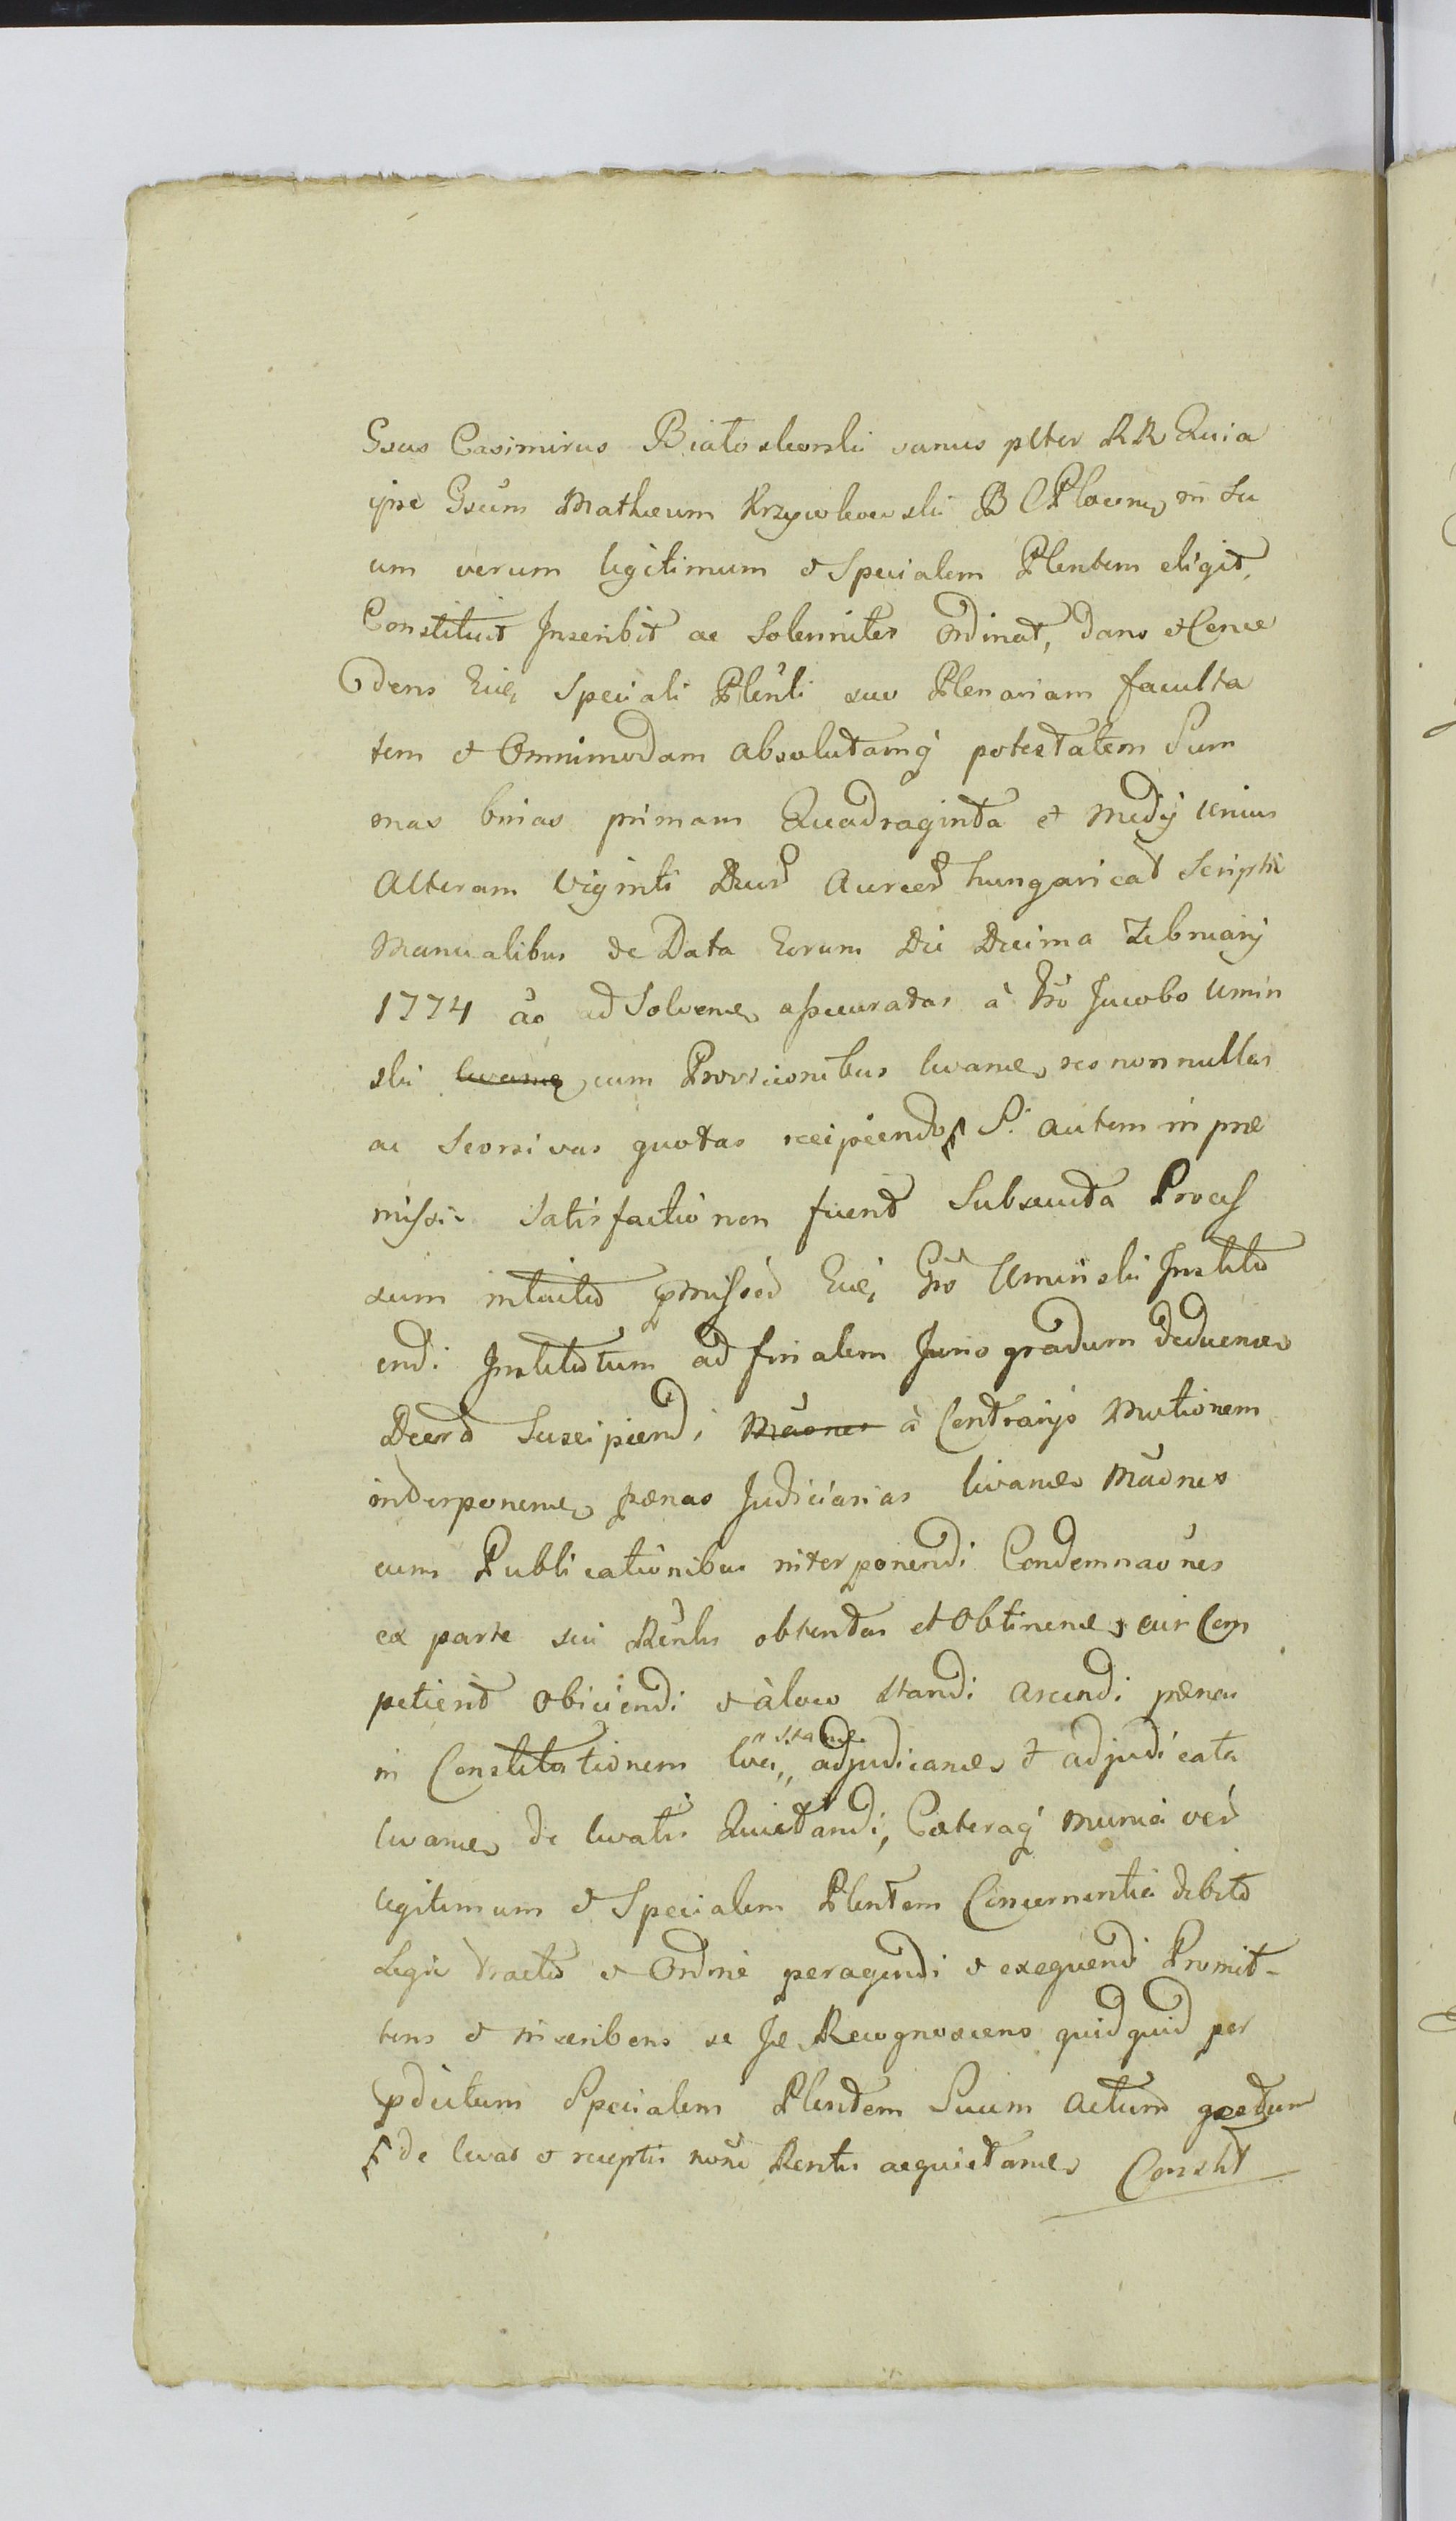 Gsus Casimirus Białoskorski sanus plter RR Quia
ipse Gsum Mathæum Krzywkowski B C Plocens in Su
um verum legitimum et Specialem Plentem eligit,
Constituit Inscribit ac Solenniter Ordinat, dans et Conce
dens Eid. Speciali Plenti suo Plenariam faculta
tem et Omnimodam absolutamq potestatem Sum
mas binas primam Quadraginta et Medij unius
Alteram Viginti Aureor hungarical Scriptis
Manualibus de Data Eorum Die Decima Februarij
1774 ao ad Solvend assecuratas à Gso Jacobo Umin
ski levand cum Provisionibus levand, seo nonnullas
ac Seorsivas quotas recipiendo Si autem in præ
missis Satisfactio non fuerit Subsecuta Process
sum intuitu pmissor Eid. Gso Uminski Institu
endi Institutum ad finalem Juris gradum deducend
Decret Suscipiendi Maones à Contrarijs Motionem
interponend pænas Judiciarias levand Maones
cum Publicationibus interponendi Condemnaones
ex parte sui Rentis obtentas et Obtinend, cui Com
petierit obiiciendi et à loco standi arcendi pænas
in Constitutionem loci, adjudicand et adjudicata
levand de levatis Quietandi, Cæteraq munia ver
legitimum et Specialem Plentem Concernentia debito
Legis tractu et Ordine peragendi et exequendi Promit-
tens et inscribens se Je Recognoscens quidquid per
pdictum Specialem Plentem Suum actum gestum
de levat et receptis noe Rentis acquietand Constit